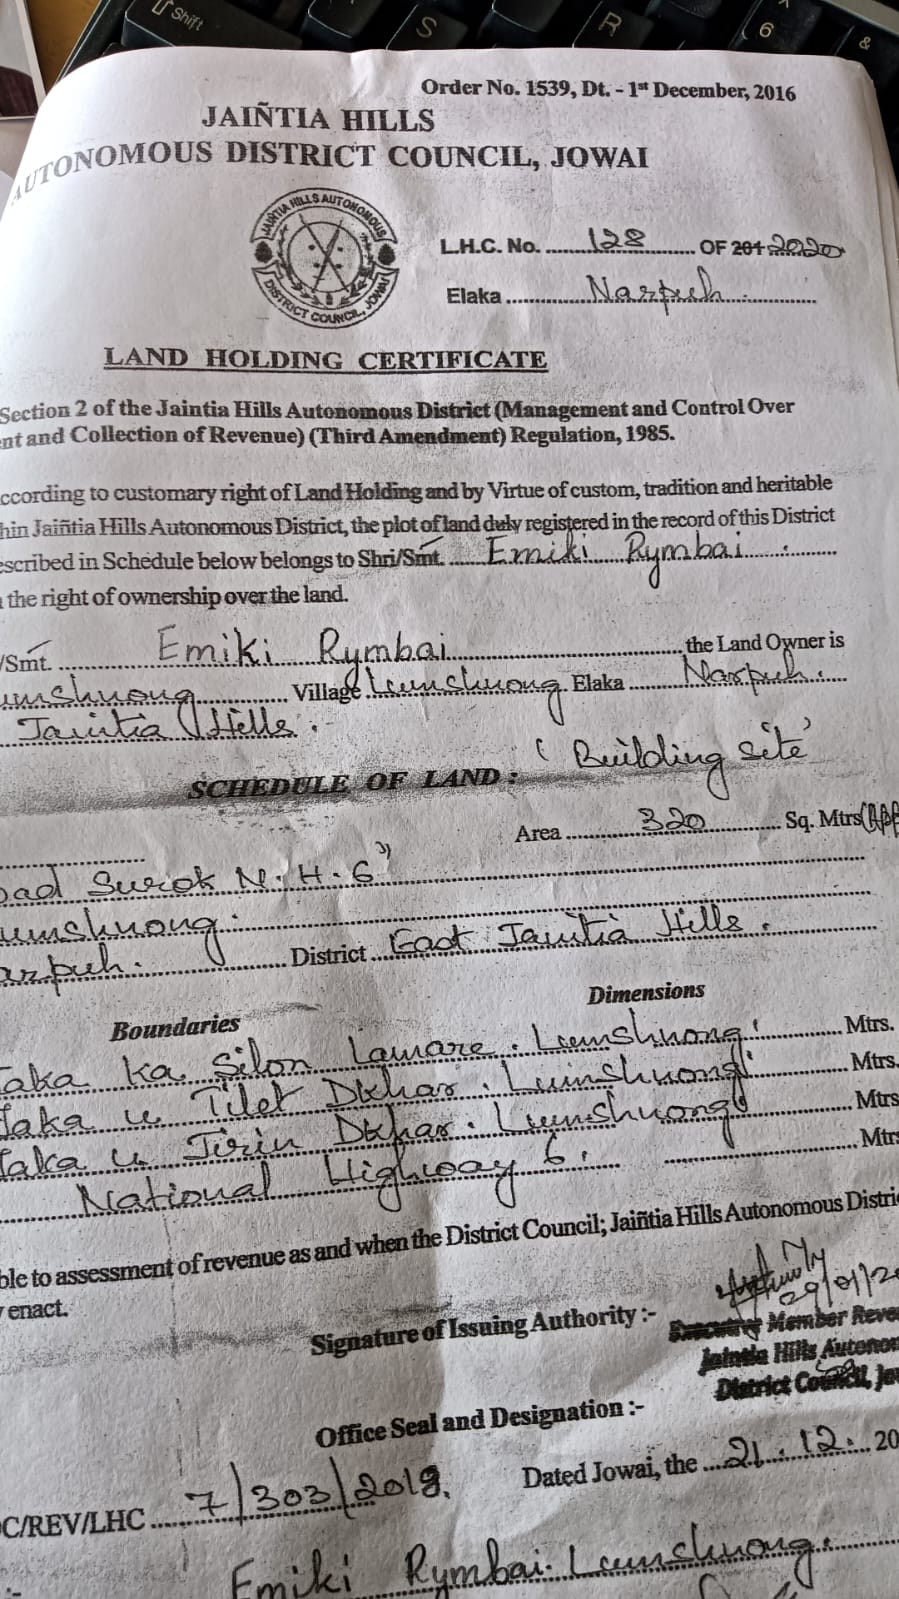 Shift
S
R
6
&
Order No. 1539, Dt. - 1st December, 2016
JAIÑTIA HILLS
AUTONOMOUS DISTRICT COUNCIL, JOWAI
JAIÑTIA HILLS AUTONOMOUS
DISTRICT COUNCIL, JOWAI
L.H.C. No. 128 OF 201 2020
Elaka Narpuh
LAND HOLDING CERTIFICATE
Section 2 of the Jaintia Hills Autonomous District (Management and Control Over
nt and Collection of Revenue) (Third Amendment) Regulation, 1985.
ccording to customary right of Land Holding and by Virtue of custom, tradition and heritable
hin Jaiñtia Hills Autonomous District, the plot of land duly registered in the record of this District
escribed in Schedule below belongs to Shri/Smt. Emiki Rymbai
the right of ownership over the land.
/Smt. Emiki Rymbai the Land Owner is
umshnong Village Lumshnong Elaka Narpuh.
Jaintia Hills.
'Building site'
SCHEDULE OF LAND :
Area 320 Sq. Mtrs (App
oad Surok N.H.6"
umshnong.
arpuh. District East Jaintia Hills.
Boundaries Dimensions
aka ka Silon Lamare. Lumshnong. Mtrs.
aka u Tilet Dkhar. Lumshnong Mtrs.
aka u Jirin Dkhar. Lumshnong Mtrs
National Highway 6. Mtr
ble to assessment of revenue as and when the District Council; Jaiñtia Hills Autonomous Distri
enact.
29/01/20
Signature of Issuing Authority :-
Executive Member Reve
Jaintia Hills Autonom
District Council, Jow
Office Seal and Designation :-
Dated Jowai, the 21. 12. 20
C/REV/LHC 7/303/2019.
Emiki Rymbai. Lumshnong.